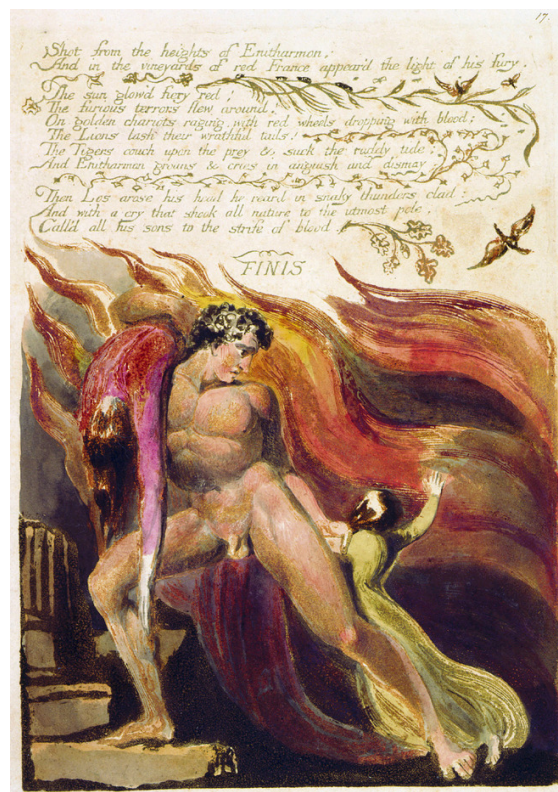 17.
Shot from the heights of Enitharmon;
And in the vineyards of red France appear'd the light of his fury.
The sun glow'd fiery red;
The furious terrors flew around;
On golden chariots raging, with red wheels dropping with blood;
The Lions lash their wrathful tails!
The Tigers couch upon the prey & suck the ruddy tide:
And Enitharmon groans & cries in anguish and dismay.
Then Los arose his head he reard in snaky thunders clad:
And with a cry that shook all nature to the utmost pole,
Call'd all his sons to the strife of blood.
FINIS